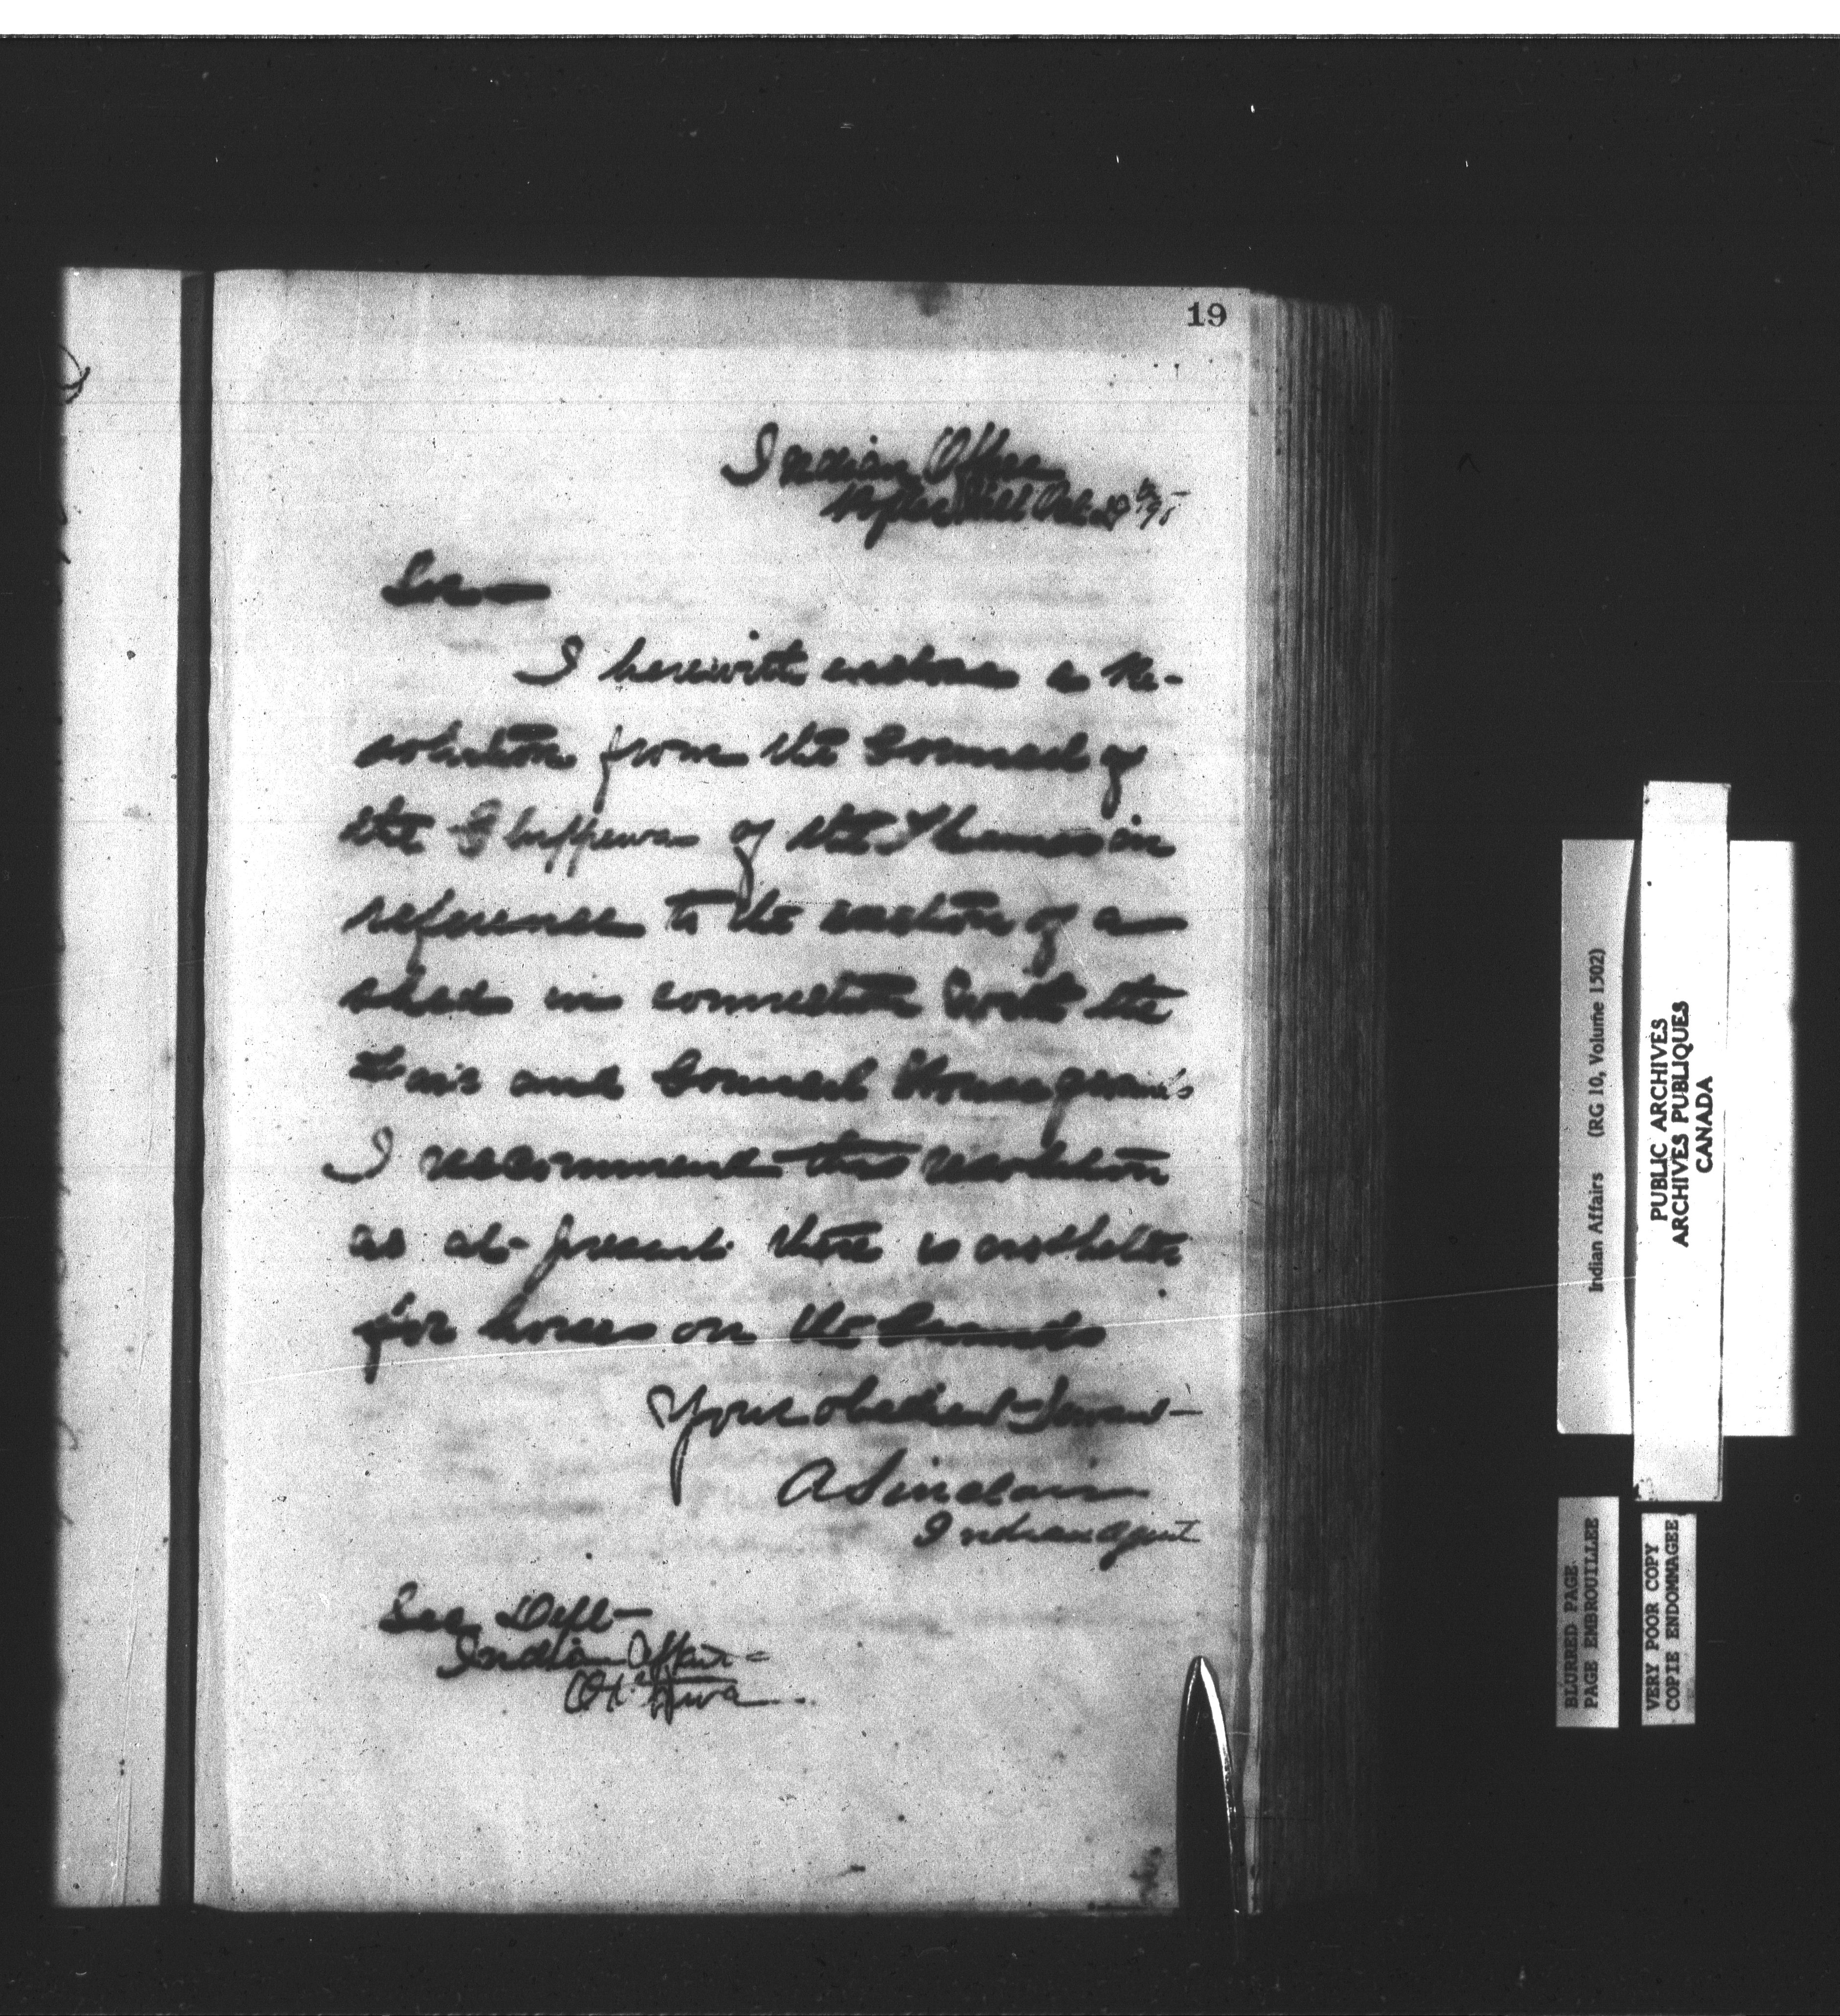 19
Indian Office
Sir
I herewith enclose a Re-
solution from the Council of
the Chippewas of the Thames in
reference to the erection of a
shed in connection with the
Fair and Council House grounds
I recommend this resolution
as at present there is no shelter
for horses on the Grounds
Your obedient Servant
A Sinclair
Indian Agent
Sec Dept
Indian Affairs
Ottawa
Indian Affairs (RG 10, Volume 1502)
PUBLIC ARCHIVES
ARCHIVES PUBLIQUES
CANADA
BLURRED PAGE
PAGE EMBROUILLEE
VERY POOR COPY
COPIE ENDOMMAGEE